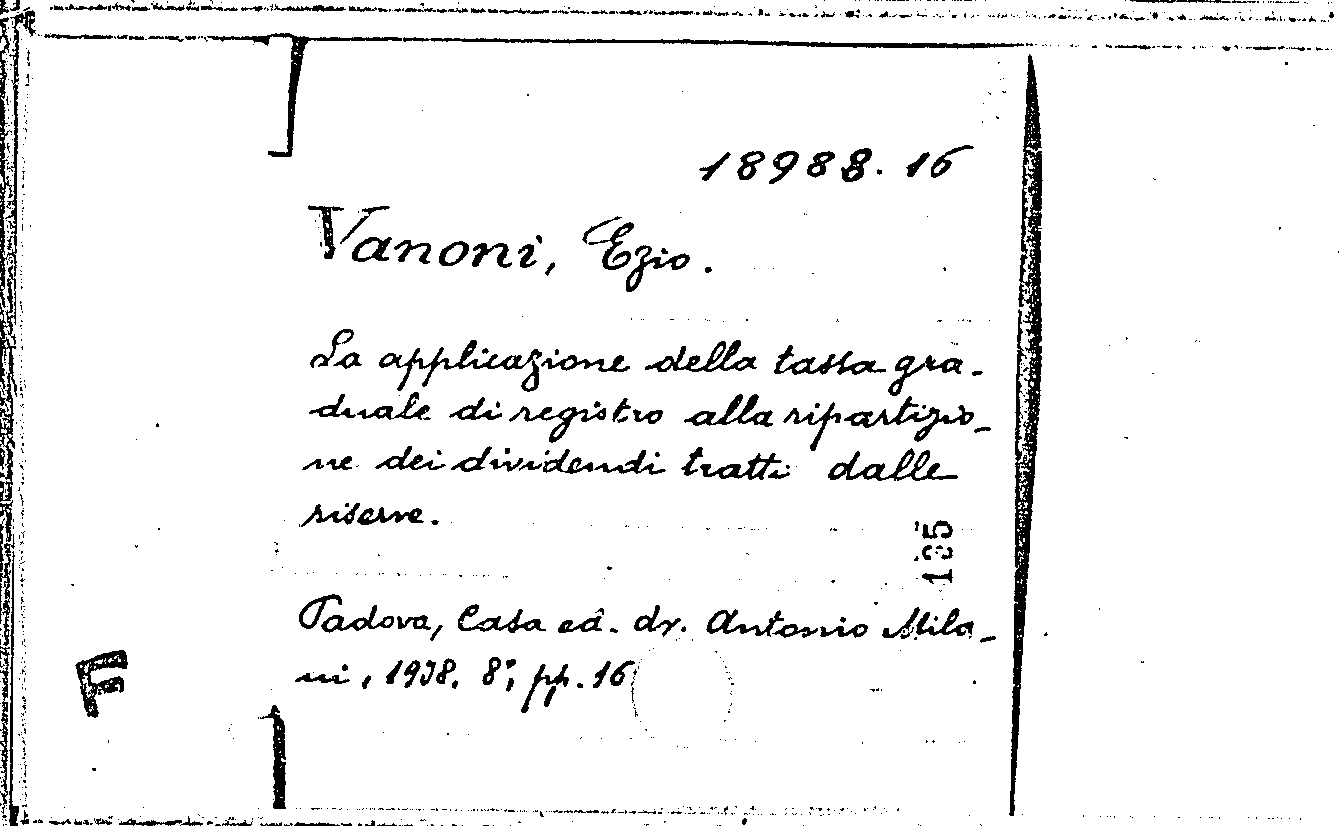 18988.16
Vanoni, Ezio.
La applicazione della tassa gra-
duale di registro alla ripartizio-
ne dei dividendi tratti dalle
riserve.
185
Padova, Casa ed. dr. Antonio Mila-
ni, 1938. 8°, pp. 16
F